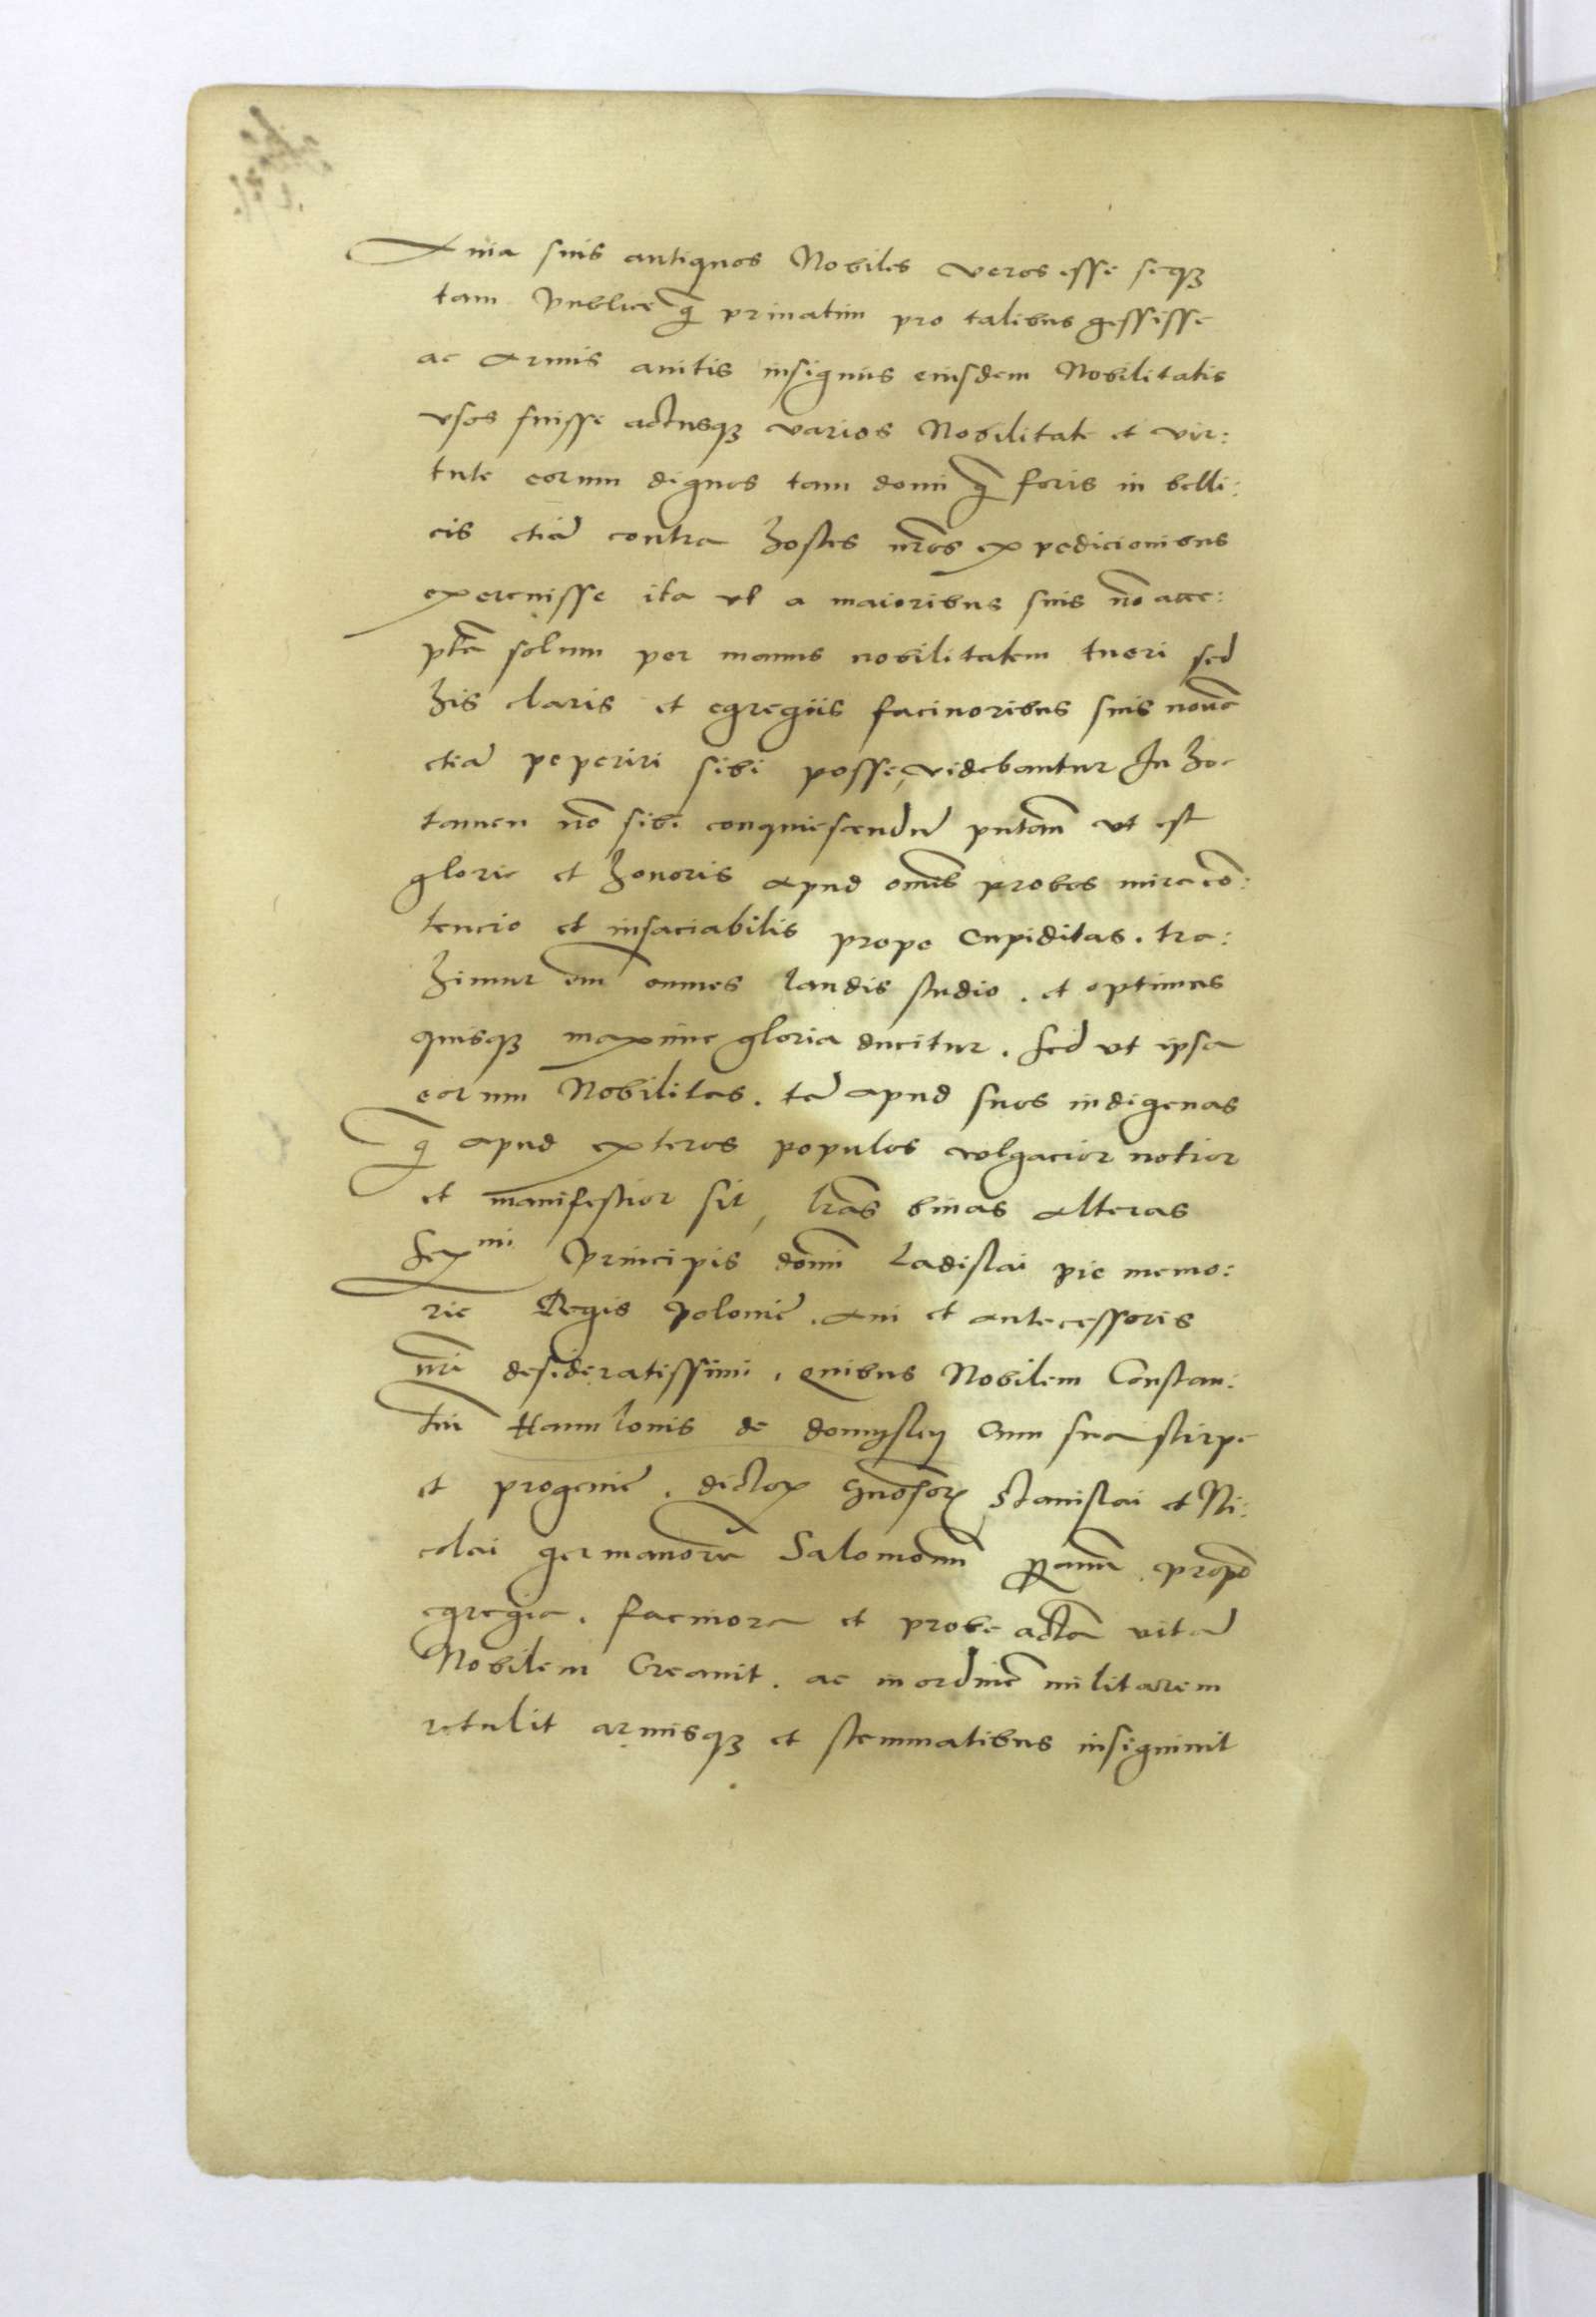 Auia suis antiquos Nobiles veros esse seqꝫ
tam Publice q̃ priuatim pro talibus gessisse
ac Armis auitis insigniis eiusdem Nobilitatis
vsos fuisse actusqꝫ varios Nobilitate et vir:
tute eorum dignos tam domi q̃ foris in belli:
cis etiã contra hostes nr̃os expedicionibus
exercuisse ita vt a maioribus suis nõ acce:
ptã solum per manus nobilitatem tueri sed
his claris et egregiis facinoribus suis nouã
etiã peperiri sibi posse, videbantur In hoc
tamen nõ sibi conquiescendũ putarũt vt est
glorie et honoris apud om̃es probos mira cõ:
tencio et insaciabilis prope Cupiditas. tra:
himur em̃ omnes laudis studio. et optimus
quisqꝫ maxime gloria ducitur. Sed vt ipsa
eorum Nobilitas. tã apud suos indigenas
q̃ apud exteros populos vulgacior notior
et manifestior sit, lr̃as binas alteras
Principis domĩ Ladislai pie memo:
rie Regis Poloniẽ. Aui et antecessoris
nr̃i desideratissimi, quibus Nobilem Constan:
tiñ de Cum sua stirpe
et progeniẽ. Stanislai et Ni:
colai germanorũ Salomonũ
egregia. facinora et probe actã vitã
Nobilem Creauit. ac in ordinẽ militarem
retulit armisqꝫ et stemmatibus insigniuit